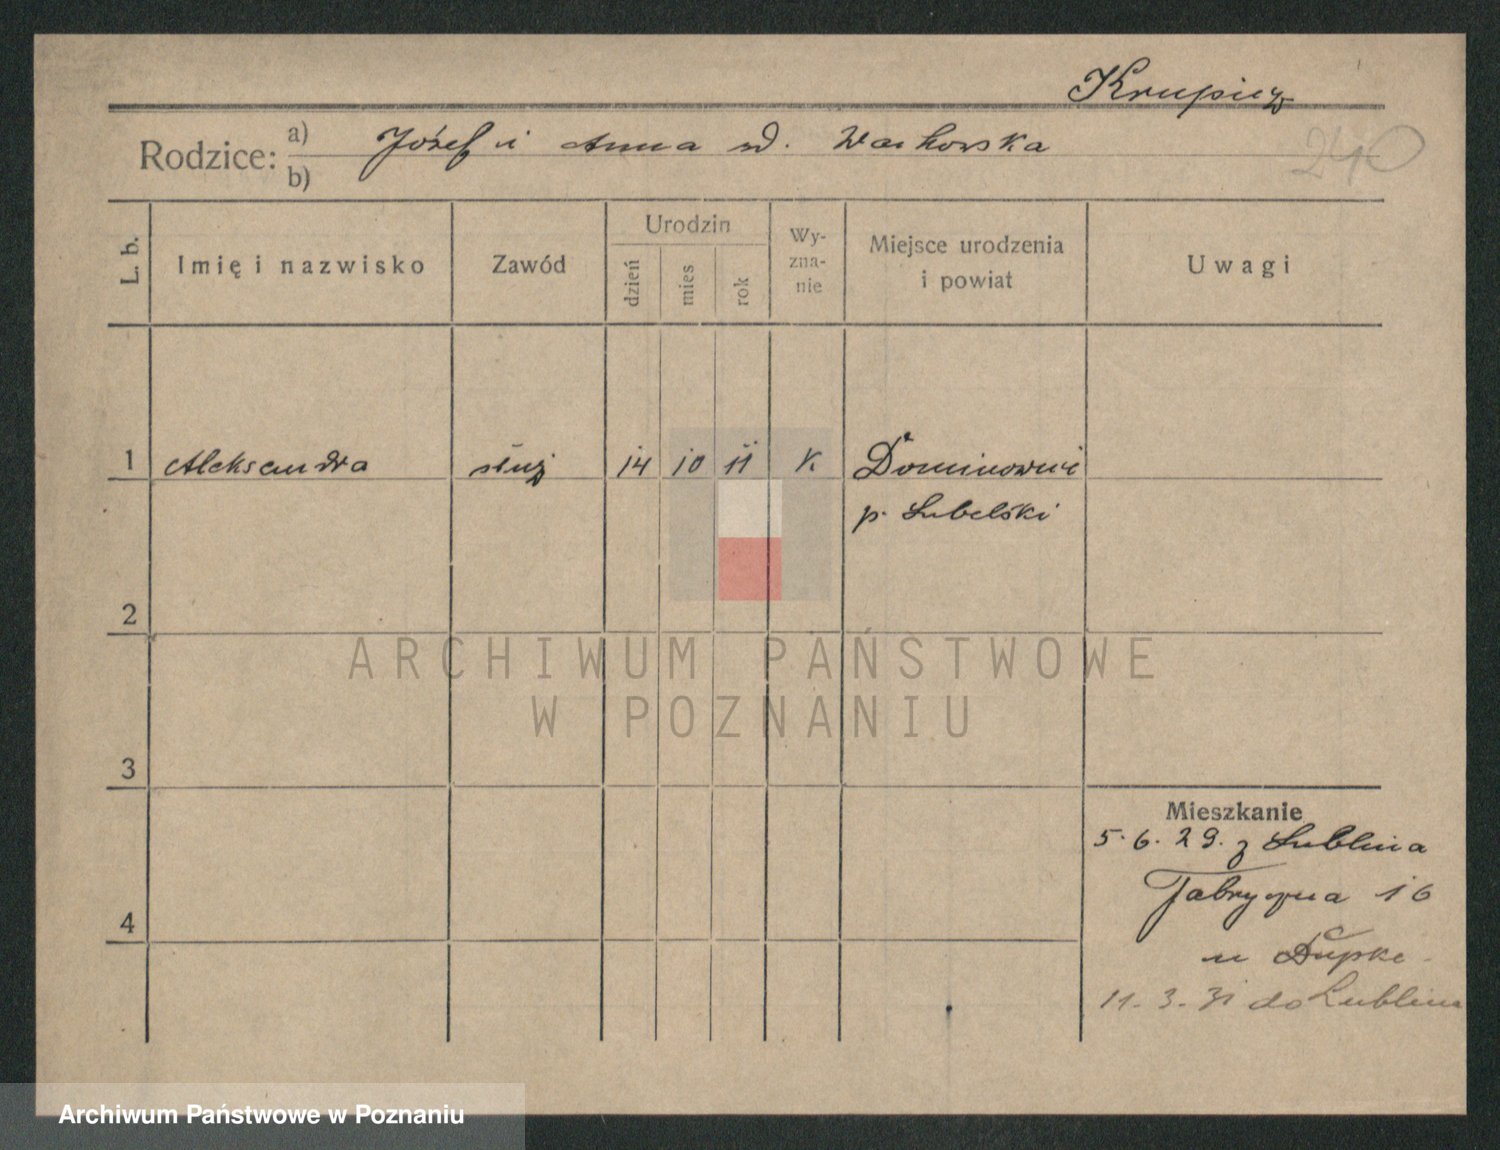 Krupicz
240
Rodzice: a) Józef i Anna d. Wachowska
b)
L. b.
Imię i nazwisko
Zawód
Urodzin
dzień
mies
rok
Wy-
zna-
nie
Miejsce urodzenia
i powiat
Uwagi
1 Aleksandra służ 14 10 11 k. Dominowni
p. Lubelski
2
3
4
Mieszkanie
5. 6. 29. z Lublina
Fabryczna 16
u Dupke
11. 3. 31 do Lublina
ARCHIWUM PAŃSTWOWE
W POZNANIU
Archiwum Państwowe w Poznaniu